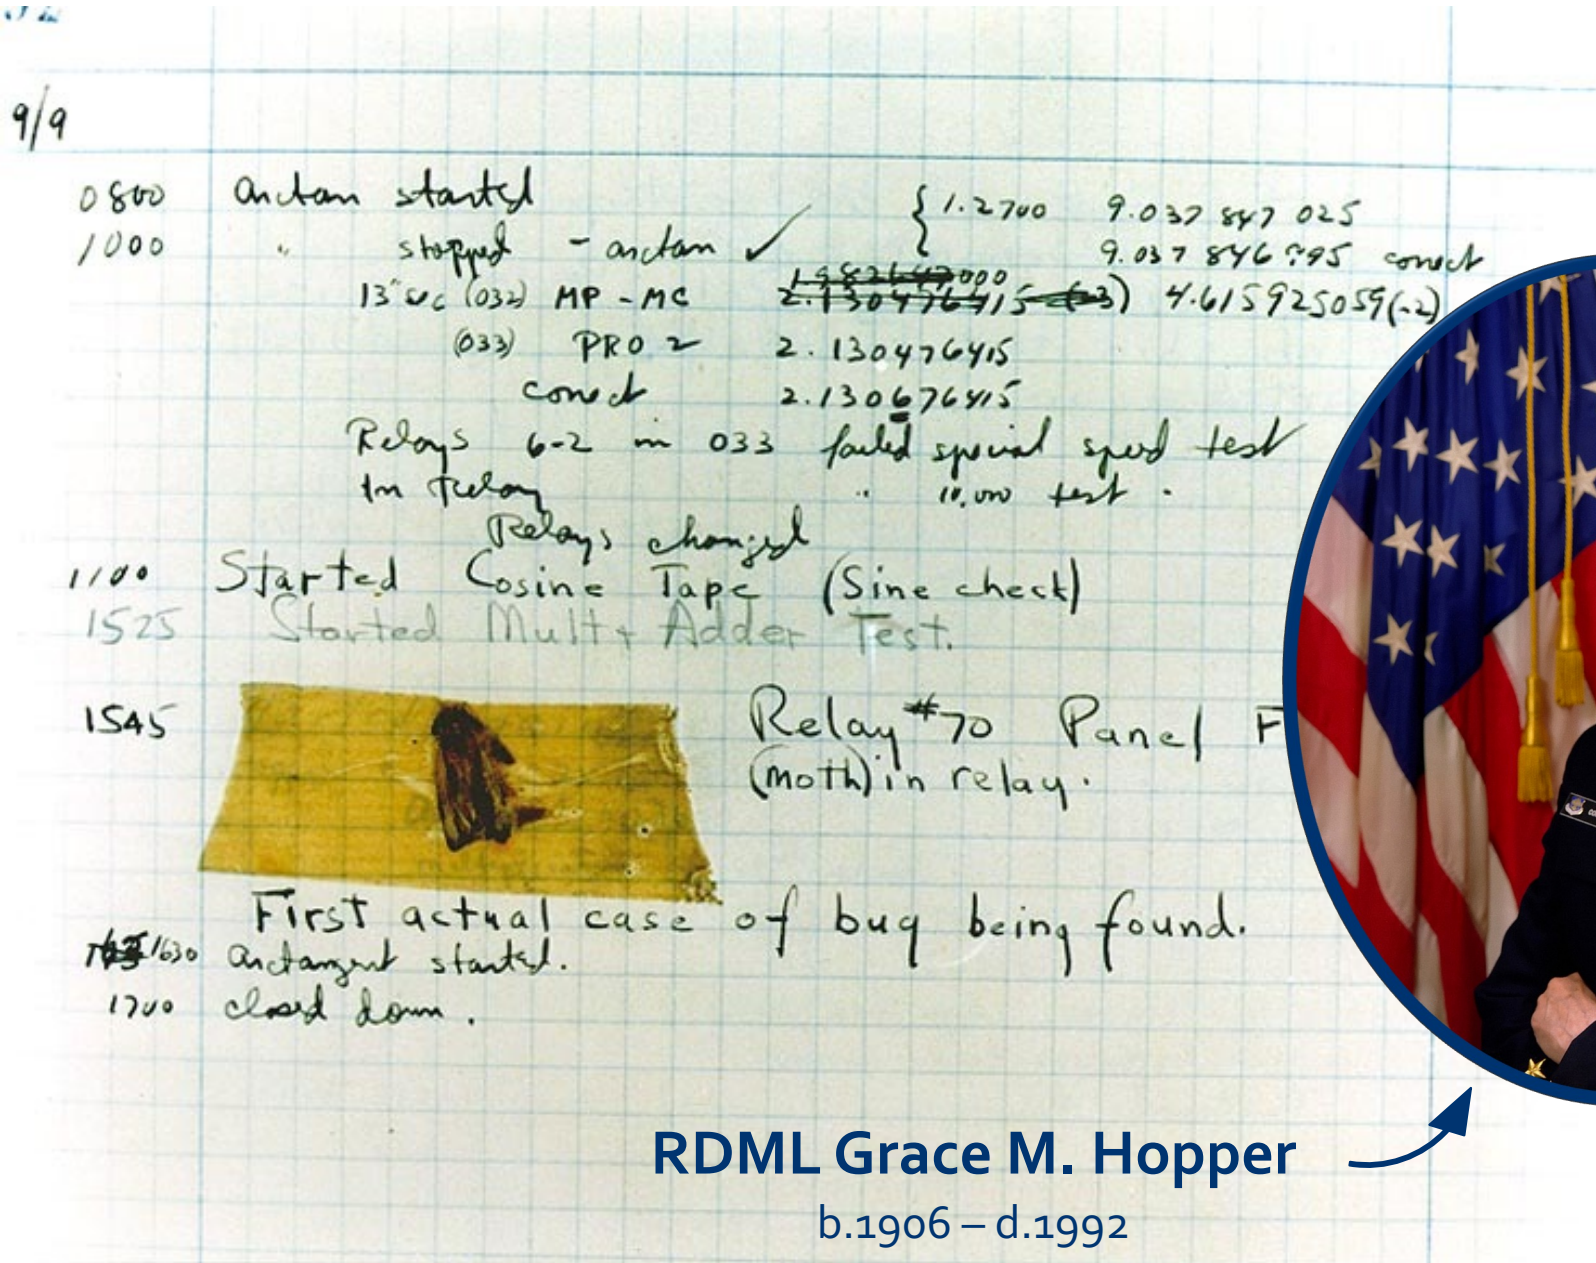 9/9
0800 arctan started { 1.2700 9.037 847 025
1000 " stopped - arctan ✓ 9.037 846 795 correct
13" sec (032) MP - MC 2.130476415 (-3) 4.615925059(-2)
(033) PRO 2 2.130476415
correct 2.130676415
Relays 6-2 in 033 failed special speed test
In Relay " 10,000 test .
Relays changed
1100 Started Cosine Tape (Sine check)
1525 Started Mult + Adder Test.
1545 Relay #70 Panel F
(moth) in relay.
First actual case of bug being found.
1630 arctangent started.
1700 closed down .
RDML Grace M. Hopper
b.1906 – d.1992